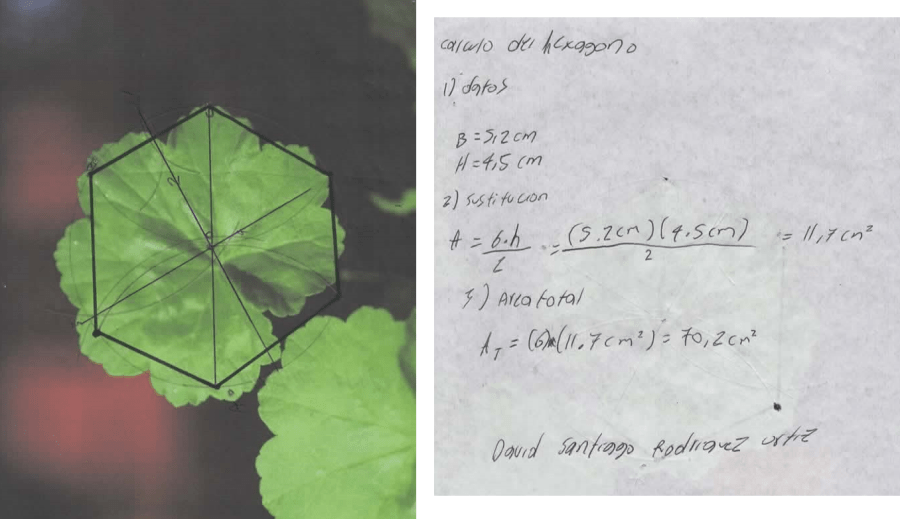 calculo del hexagono
1) datos
B = 5,2 cm
H = 4,5 cm
2) sustitucion
A = b.h / 2 = (5.2cm)(4.5cm) / 2 = 11,7 cm²
3) Area total
A_T = (6)(11,7 cm²) = 70,2 cm²
David Santiago Rodriguez Ortiz